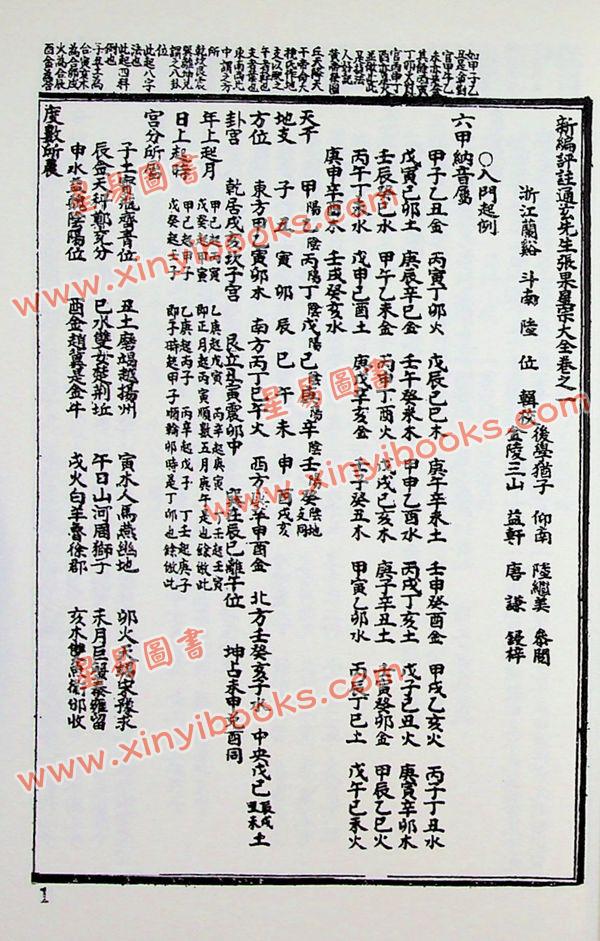 新編評註通玄先生張果星宗大全卷之一
浙江蘭谿 斗南 陸 位 輯校
後學猶子 仰南 陸繼美 參閱
金陵三山 益軒 唐 謙 鋟梓
○入門起例
六甲納音屬
甲子乙丑金 丙寅丁卯火 戊辰己巳木 庚午辛未土 壬申癸酉金 甲戌乙亥火 丙子丁丑水
戊寅己卯土 庚辰辛巳金 壬午癸未木 甲申乙酉水 丙戌丁亥土 戊子己丑火 庚寅辛卯木
壬辰癸巳水 甲午乙未金 丙申丁酉火 戊戌己亥木 庚子辛丑土 壬寅癸卯金 甲辰乙巳火
丙午丁未水 戊申己酉土 庚戌辛亥金 壬子癸丑木 甲寅乙卯水 丙辰丁巳土 戊午己未火
庚申辛酉木 壬戌癸亥水
天干 甲陽乙陰丙陽丁陰戊陽己陰庚陽辛陰壬陽癸陰地支同
地支 子丑寅卯辰巳午未申酉戌亥
方位 東方甲乙寅卯木 南方丙丁巳午火 西方庚辛申酉金 北方壬癸亥子水 中央戊己辰戌丑未土
卦宮 乾居戌亥坎子宮 艮立丑寅震卯中 巽在辰巳離午位 坤占未申兌酉同
年上起月 甲己起丙寅 乙庚起戊寅 丙辛起庚寅 丁壬起壬寅
戊癸起甲寅 即正月起丙寅順數五月庚午是也餘倣此
日上起時 甲己起甲子 乙庚起丙子 丙辛起戊子 丁壬起庚子
戊癸起壬子 即子時起甲子順輪卯時是丁卯也餘倣此
宮分所屬
子土寶瓶齊青位 丑土磨竭越揚州 寅木人馬燕幽地 卯火天蝎宋豫求
辰金天秤鄭兗分 巳水雙女楚荊丘 午日山河周獅子 未月巨蟹秦雍留
申水陰陽位 酉金趙冀是金牛 戌火白羊魯徐郡 亥木雙魚衛邠收
度數所屬
www.xinyibooks.com
星易圖書
www.xinyibooks.com
星易圖書
www.xinyibooks.com
星易圖書
1